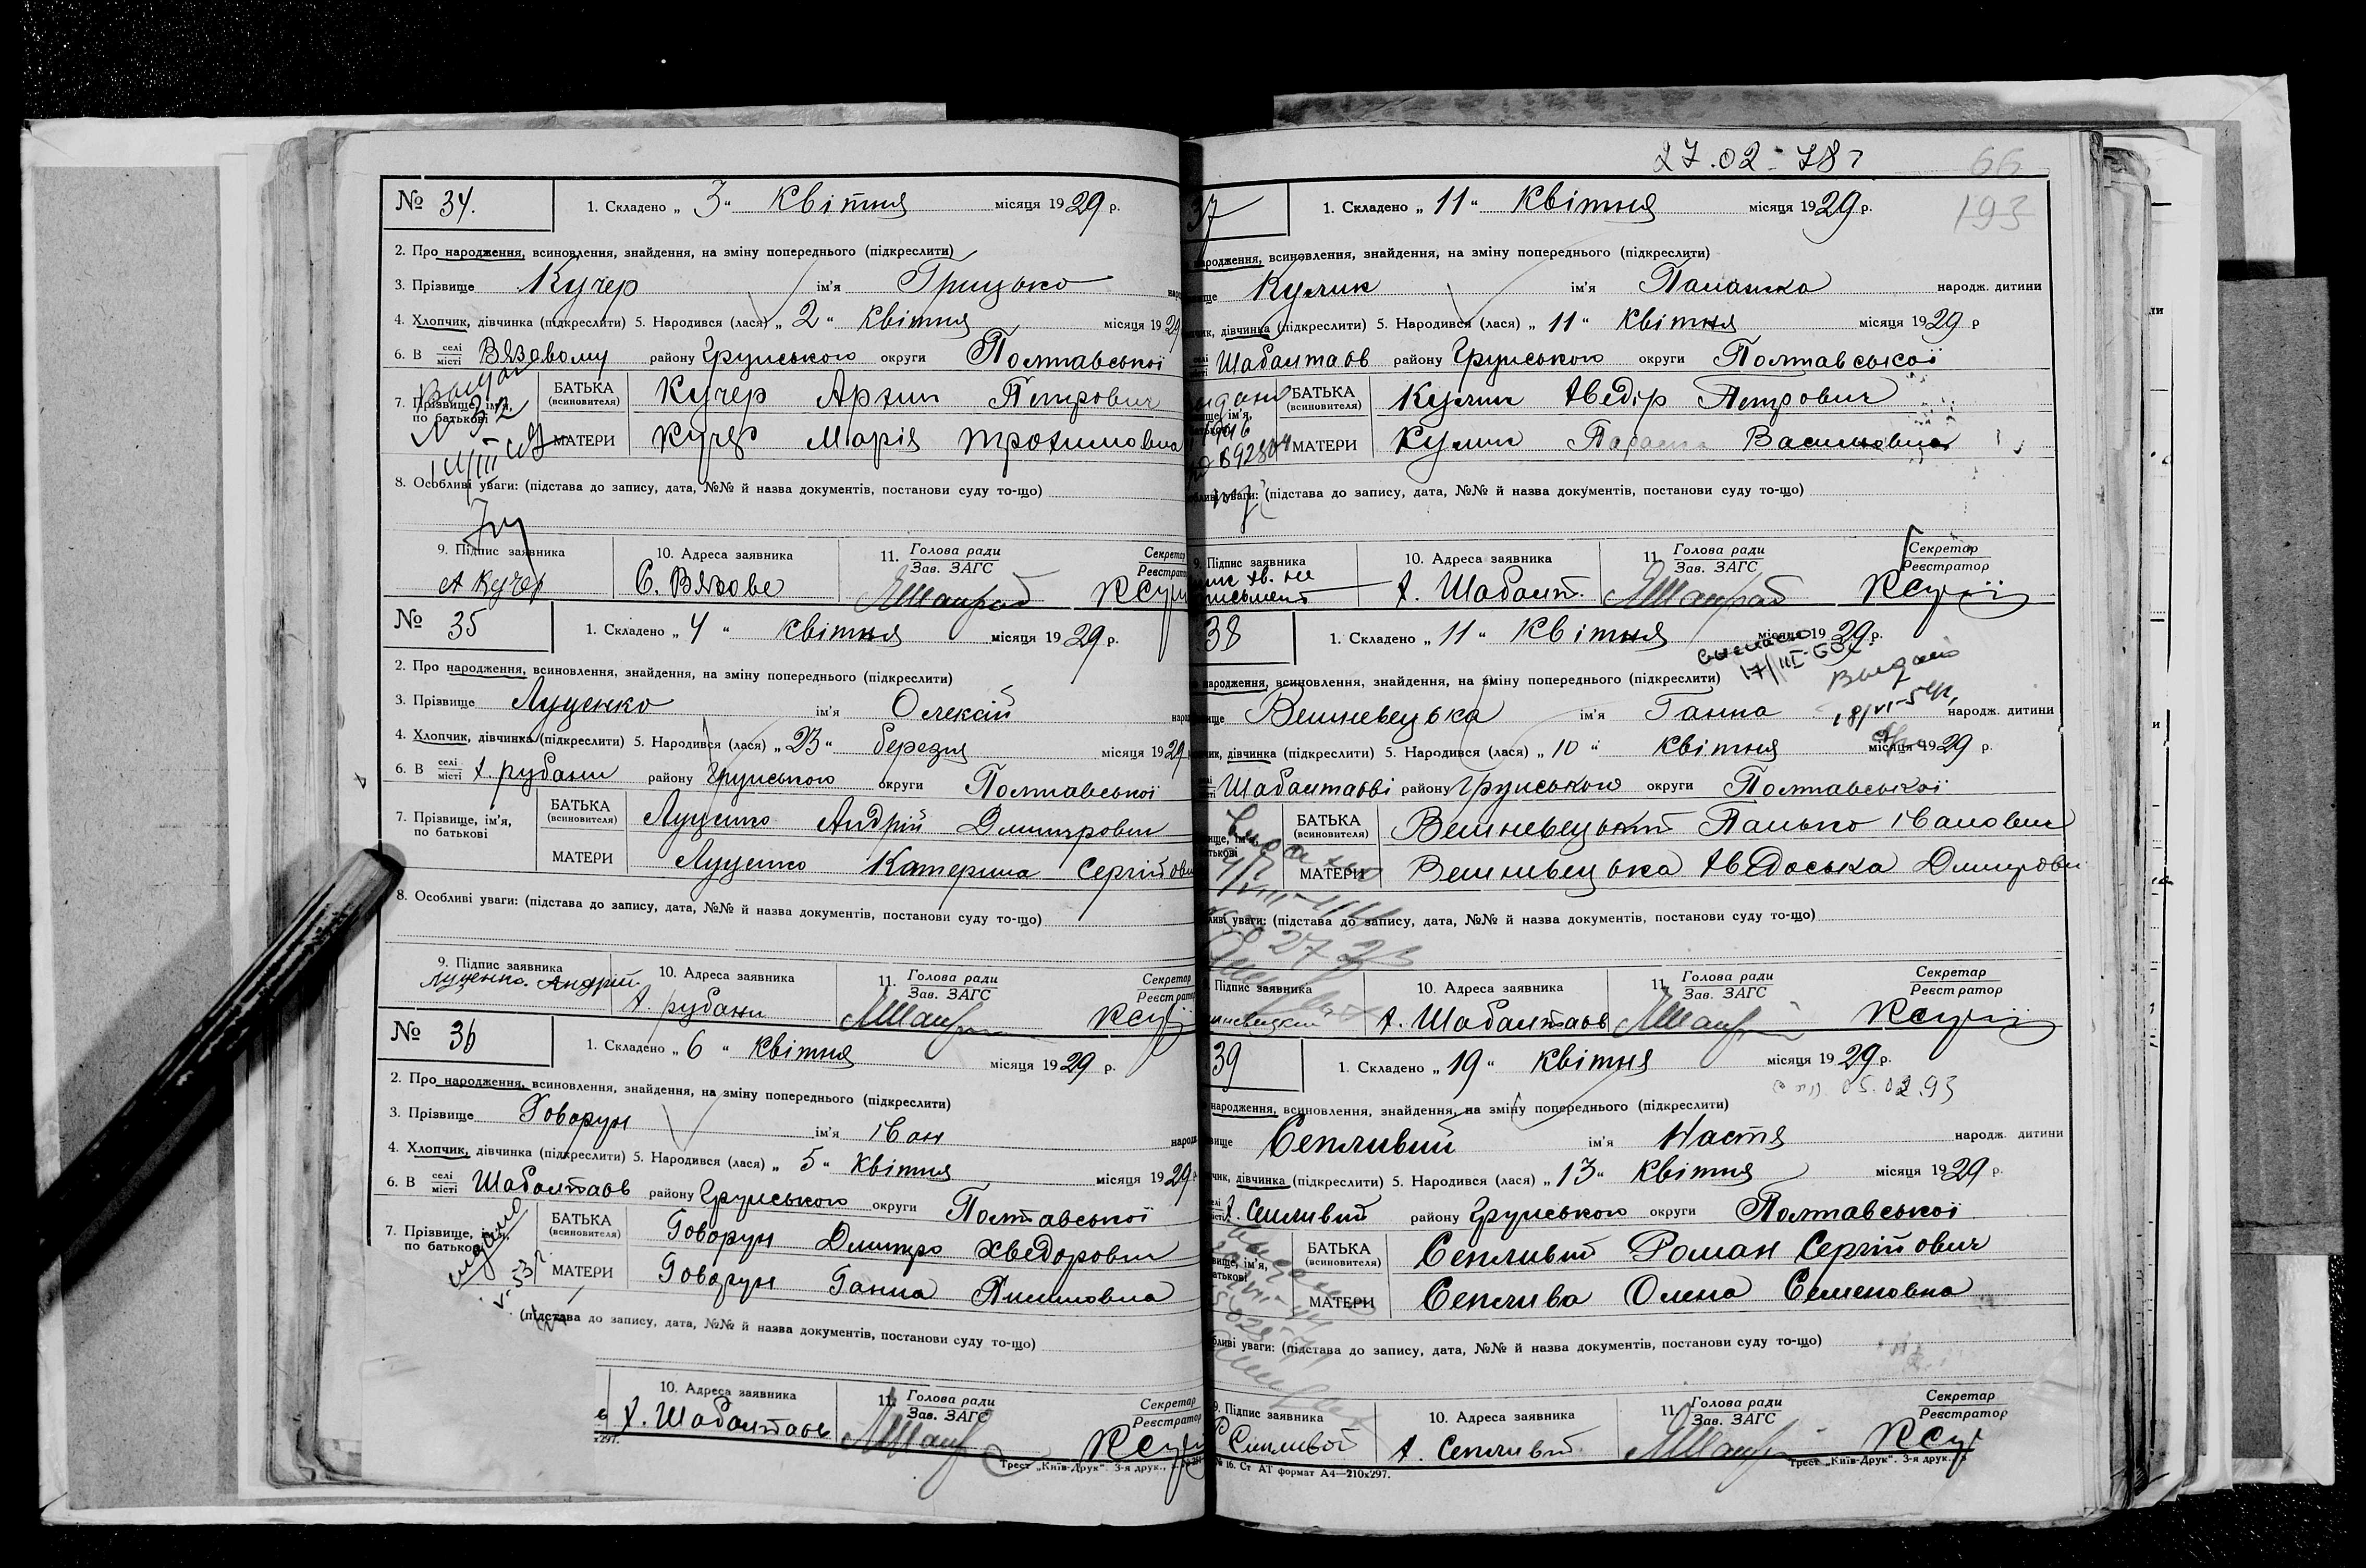 № 34.
1. Складено „ 3 “ Квітня місяця 1929 р.
2. Про народження, всиновлення, знайдення, на зміну попереднього (підкреслити)
3. Прізвище Кучер ім'я Грицько
4. Хлопчик, дівчинка (підкреслити) 5. Народився (лася) „ 2 “ Квітня місяця 1929
6. В селі/місті Вязовому району Грунського округи Полтавської
7. Прізвище, ім'я, по батькові
БАТЬКА (всиновителя) Кучер Архип Петрович
МАТЕРИ Кучер Марія Трохимовна
8. Особливі уваги: (підстава до запису, дата, №№ й назва документів, постанови суду то-що)
9. Підпис заявника 10. Адреса заявника 11. Голова ради / Зав. ЗАГС Секретар / Реєстратор
А Кучер С. Вязове
№ 35
1. Складено „ 4 “ Квітня місяця 1929 р.
2. Про народження, всиновлення, знайдення, на зміну попереднього (підкреслити)
3. Прізвище Луценко ім'я Олексій
4. Хлопчик, дівчинка (підкреслити) 5. Народився (лася) „ 23 “ березня місяця 1929
6. В селі/місті х. рубани району Грунського округи Полтавської
7. Прізвище, ім'я, по батькові
БАТЬКА (всиновителя) Луценко Андрій Дмитрович
МАТЕРИ Луценко Катерина Сергійовн
8. Особливі уваги: (підстава до запису, дата, №№ й назва документів, постанови суду то-що)
9. Підпис заявника 10. Адреса заявника 11. Голова ради / Зав. ЗАГС Секретар / Реєстратор
Луценко. Андрій х. рубани
№ 36
1. Складено „ 6 “ Квітня місяця 1929 р.
2. Про народження, всиновлення, знайдення, на зміну попереднього (підкреслити)
3. Прізвище Говорун ім'я Іван
4. Хлопчик, дівчинка (підкреслити) 5. Народився (лася) „ 5 “ Квітня місяця 1929 р
6. В селі/місті Шабалтаїв району Грунського округи Полтавської
7. Прізвище, ім'я, по батькові
БАТЬКА (всиновителя) Говорун Дмитро Хведорович
МАТЕРИ Говорун Ганна
(підстава до запису, дата, №№ й назва документів, постанови суду то-що)
10. Адреса заявника 11. Голова ради / Зав. ЗАГС Секретар / Реєстратор
х. Шабалтаїв
Трест „Київ-Друк“. 3-я друк.,
27.02.78
66
193
37
1. Складено „ 11 “ Квітня місяця 1929 р.
народження, всиновлення, знайдення, на зміну попереднього (підкреслити)
Кулик ім'я Палашка народж. дитини
дівчинка (підкреслити) 5. Народився (лася) „ 11 “ Квітня місяця 1929 р
Шабалтаїв району Грунського округи Полтавської
БАТЬКА (всиновителя) Кулик Хведір Петрович
МАТЕРИ Кулик Параска Василовна
уваги: (підстава до запису, дата, №№ й назва документів, постанови суду то-що)
9. Підпис заявника 10. Адреса заявника 11. Голова ради / Зав. ЗАГС Секретар / Реєстратор
х. Шабалт.
38
1. Складено „ 11 “ Квітня місяця 1929 р.
народження, всиновлення, знайдення, на зміну попереднього (підкреслити)
Вешневецька ім'я Ганна народж. дитини
дівчинка (підкреслити) 5. Народився (лася) „ 10 “ Квітня місяця 1929 р.
Шабалтаєві району Грунського округи Полтавської
БАТЬКА (всиновителя) Вешневецький Панько Іванович
МАТЕРИ Вешневецька Хведоська Дмитрови
уваги: (підстава до запису, дата, №№ й назва документів, постанови суду то-що)
Підпис заявника 10. Адреса заявника 11. Голова ради / Зав. ЗАГС Секретар / Реєстратор
х. Шабалтаїв
39
1. Складено „ 19 “ Квітня місяця 1929 р.
05.02.93
народження, всиновлення, знайдення, на зміну попереднього (підкреслити)
Сепливий ім'я Настя народж. дитини
дівчинка (підкреслити) 5. Народився (лася) „ 13 “ Квітня місяця 1929 р.
х. Сепливий району Грунського округи Полтавської
БАТЬКА (всиновителя) Сепливий Роман Сергійович
МАТЕРИ Сеплива Олена Семеновна
уваги: (підстава до запису, дата, №№ й назва документів, постанови суду то-що)
9. Підпис заявника 10. Адреса заявника 11. Голова ради / Зав. ЗАГС Секретар / Реєстратор
х. Сепливий
№ 16. Ст АТ формат А4—210х297.
Трест „Київ-Друк“. 3-я друк.,